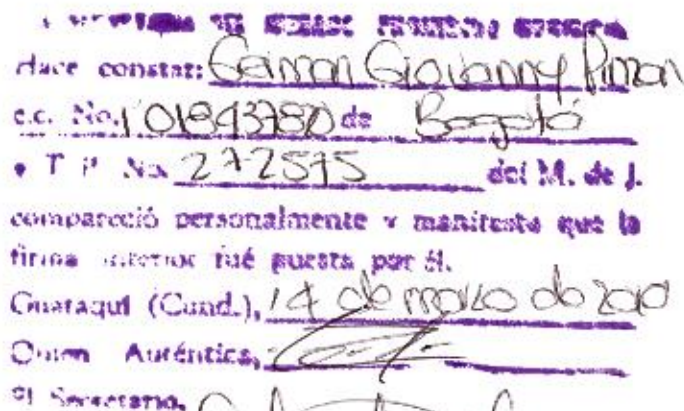 Hace constar: German Giovanny Pinzon
c.c. No. 101843780 de Bogotá
T. P. No. 272575 del M. de J.
compareció personalmente y manifesto que la
firma anterior fué puesta por él.
Guataquí (Cund.), 14 de marzo de 2010
Quien Auténtica,
El Secretario,